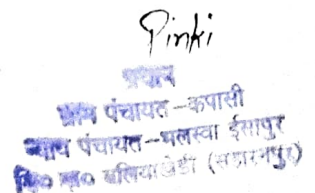 Pinki
प्रधान
ग्राम पंचायत-कपासी
न्याय पंचायत-मलस्वा ईसापुर
वि० ख० बलियाखेडी (सहारनपुर)